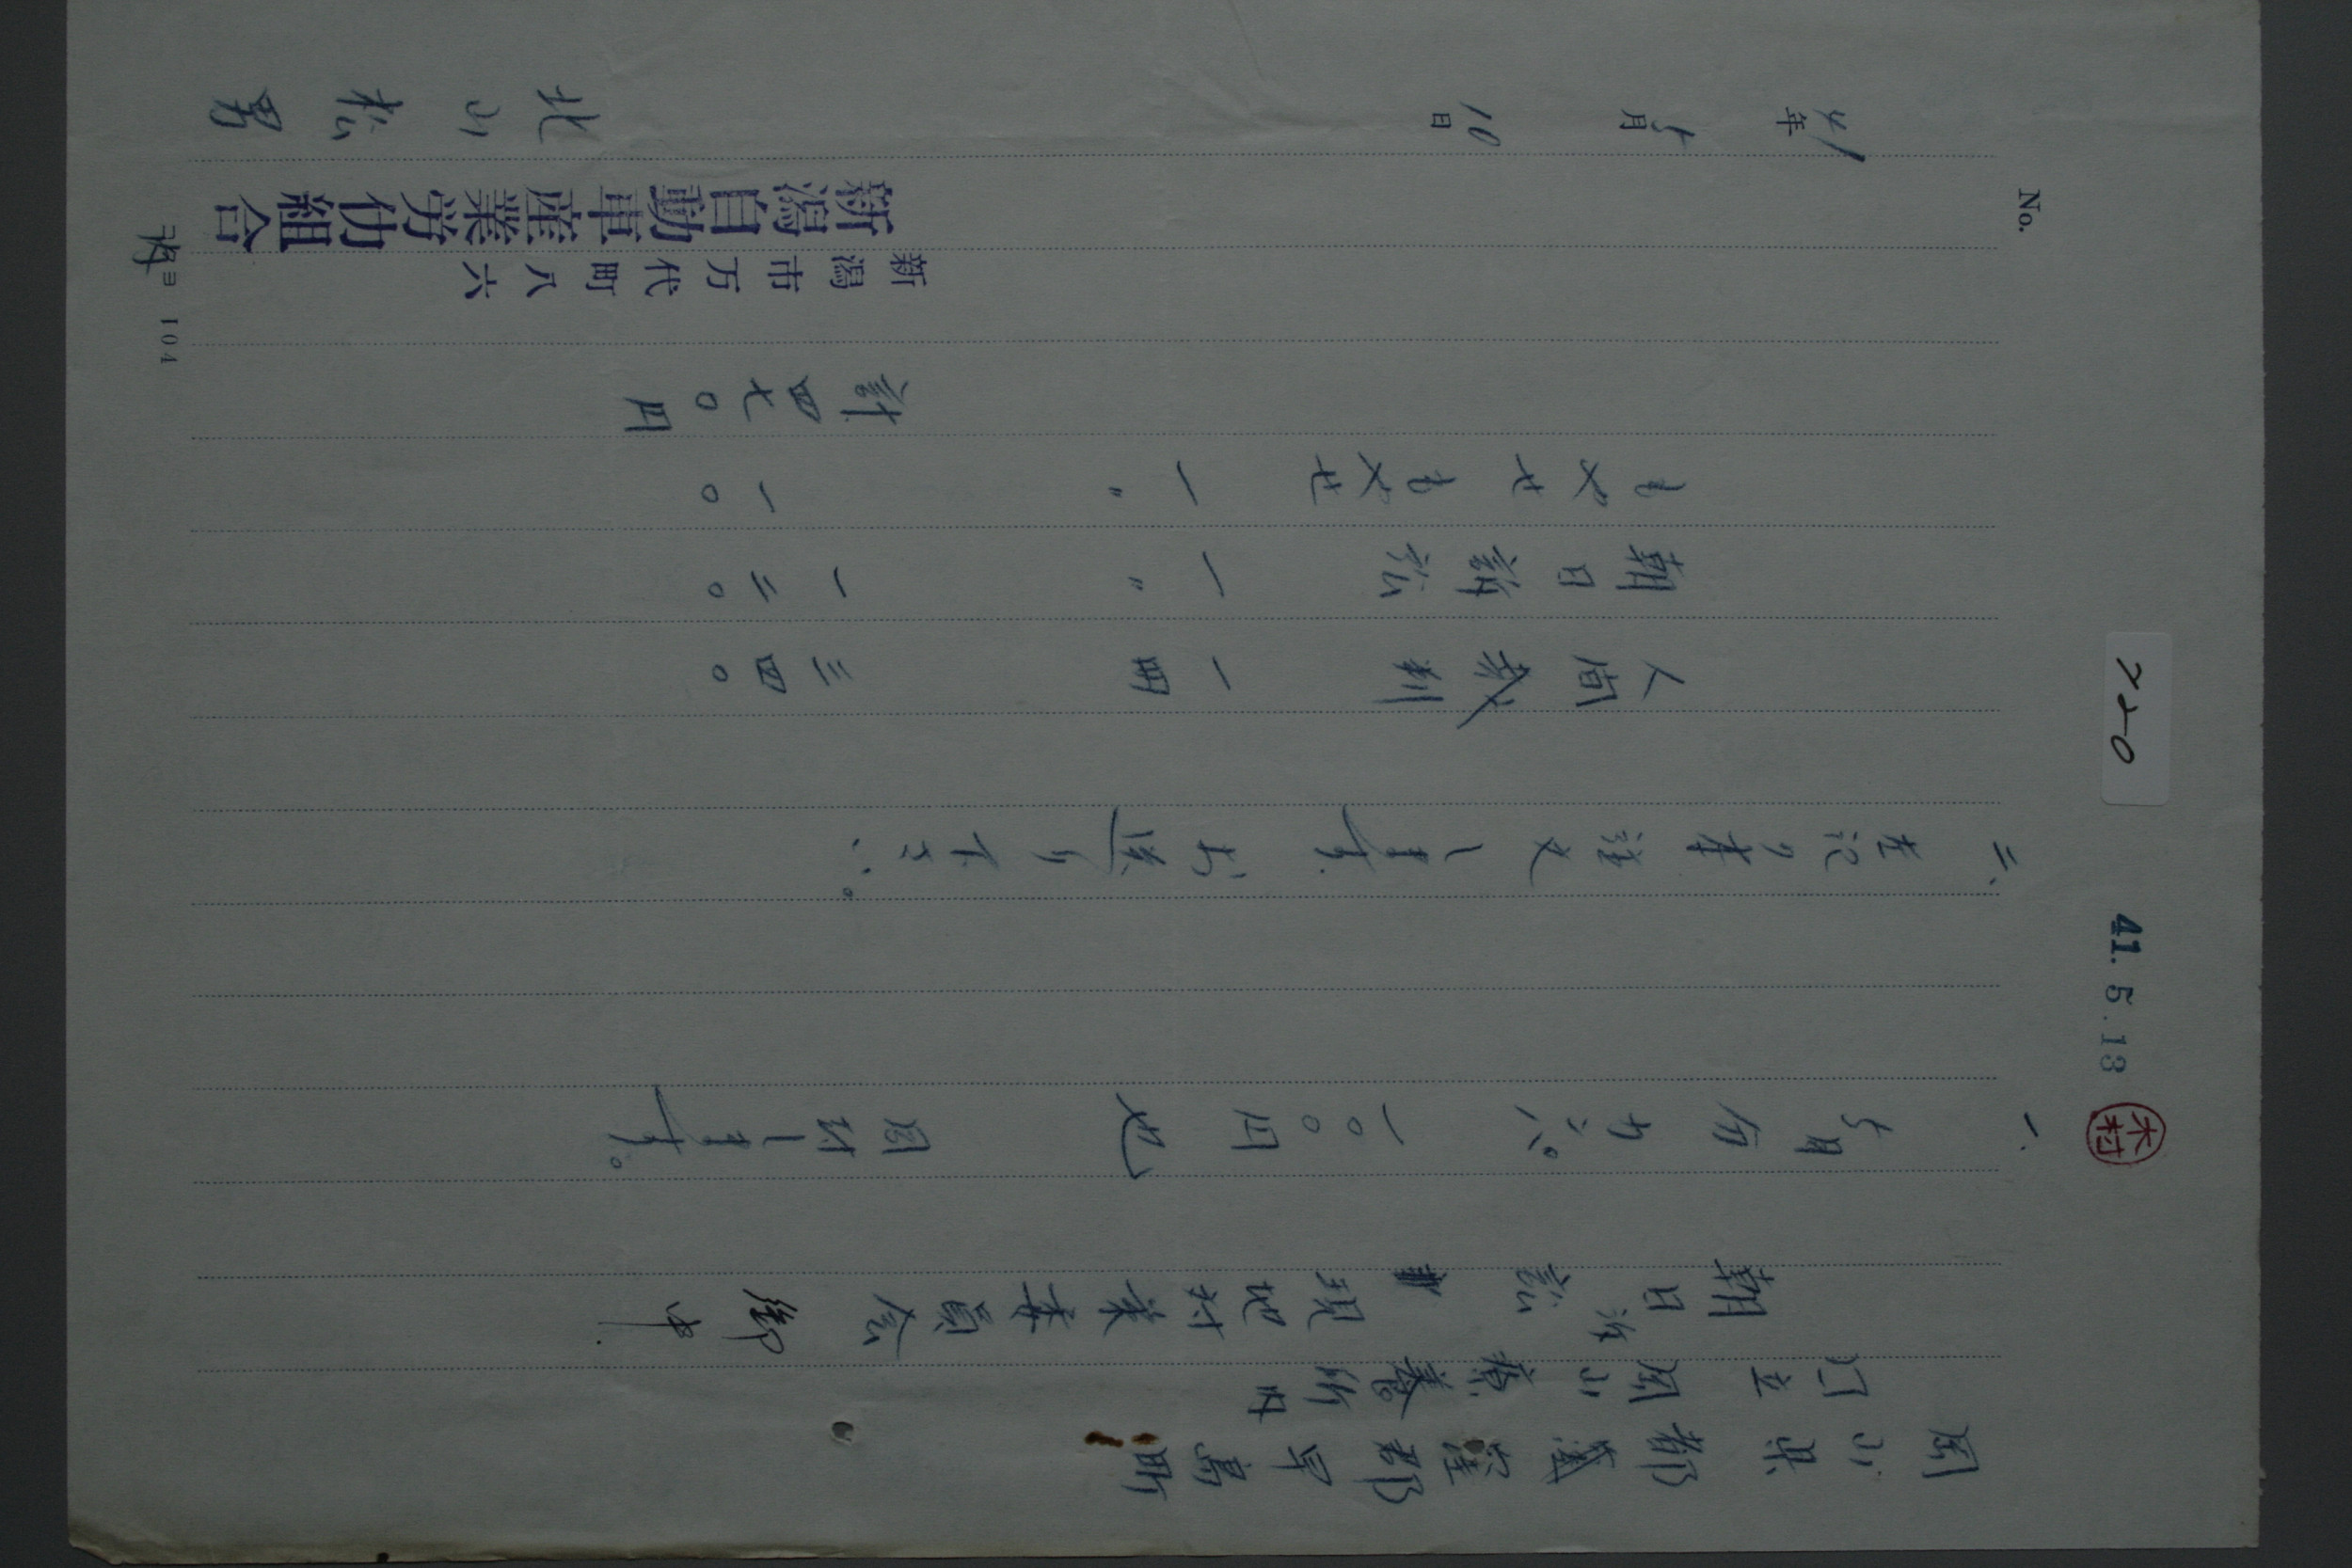 No.
220
41.5.13
木村
岡山県都窪郡早島町
国立岡山療養所内
朝日訴訟現地対策委員会 御中
一、5月分カンパ。一〇〇円也 同封します。
二、左記の本注文します お送り下さい。
人間裁判 一冊 三四〇
朝日訴訟 一〃 一二〇
もやせもやせ 一〃 一〇
計四七〇円
新潟市万代町八六
新潟自動車産業労仂組合
41年5月10日 北山松男
104